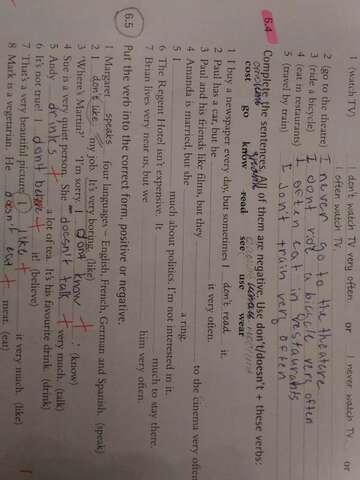 1 (watch TV) I don't watch TV very often. or I never watch TV. or
I often watch TV.
2 (go to the theatre) I never go to the theature
3 (ride a bicycle) I dont ride a bicycle very often
4 (eat in restaurants) I often eat in restaurants
5 (travel by train) I don't train very often
6.4 Complete the sentences. All of them are negative. Use don't/doesn't + these verbs:
cost go know read see use wear
1 I buy a newspaper every day, but sometimes I don't read it.
2 Paul has a car, but he it very often.
3 Paul and his friends like films, but they to the cinema very often.
4 Amanda is married, but she a ring.
5 I much about politics. I'm not interested in it.
6 The Regent Hotel isn't expensive. It much to stay there.
7 Brian lives very near us, but we him very often.
6.5 Put the verb into the correct form, positive or negative.
1 Margaret speaks four languages – English, French, German and Spanish. (speak)
2 I don't like my job. It's very boring. (like)
3 'Where's Martin?' 'I'm sorry. I dont know .' (know)
4 Sue is a very quiet person. She doesn't talk very much. (talk)
5 Andy drinks a lot of tea. It's his favourite drink. (drink)
6 It's not true! I it! (believe)
7 That's a very beautiful picture. I like it very much. (like)
8 Mark is a vegetarian. He doesn't eat meat. (eat)